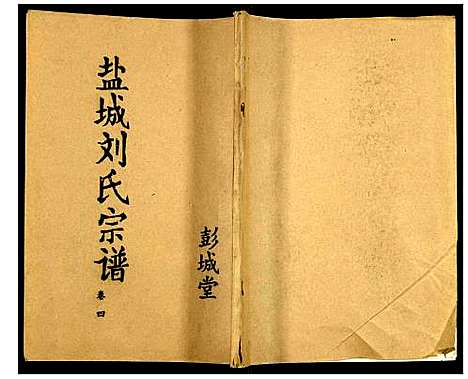 盐城刘氏宗谱
卷四
彭城堂